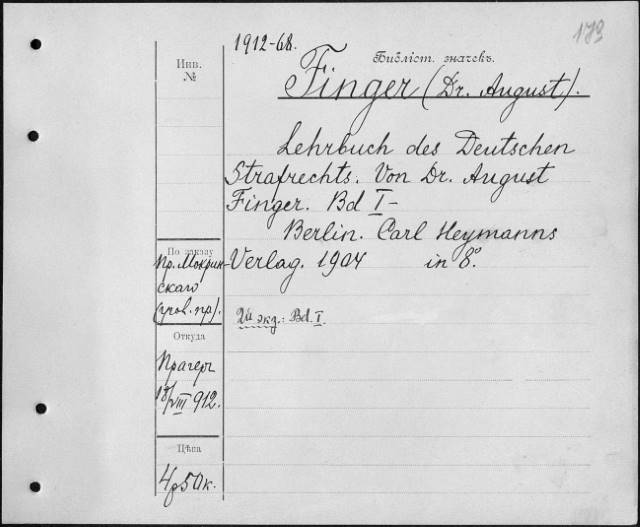 1912-68.
173
Инв.
№
Библіот. значекъ.
Finger (Dr. August).
Lehrbuch des Deutschen
Strafrechts. Von Dr. August
Finger. Bd I-
Berlin. Carl Heymanns
Verlag. 1904 in 8º.
По заказу
Пр. Мокрин-
скаго
(угов. пр).
2й экз.: Bd. I.
Откуда
Прагеръ
18/VIII 912.
Цѣна
4р 50к.